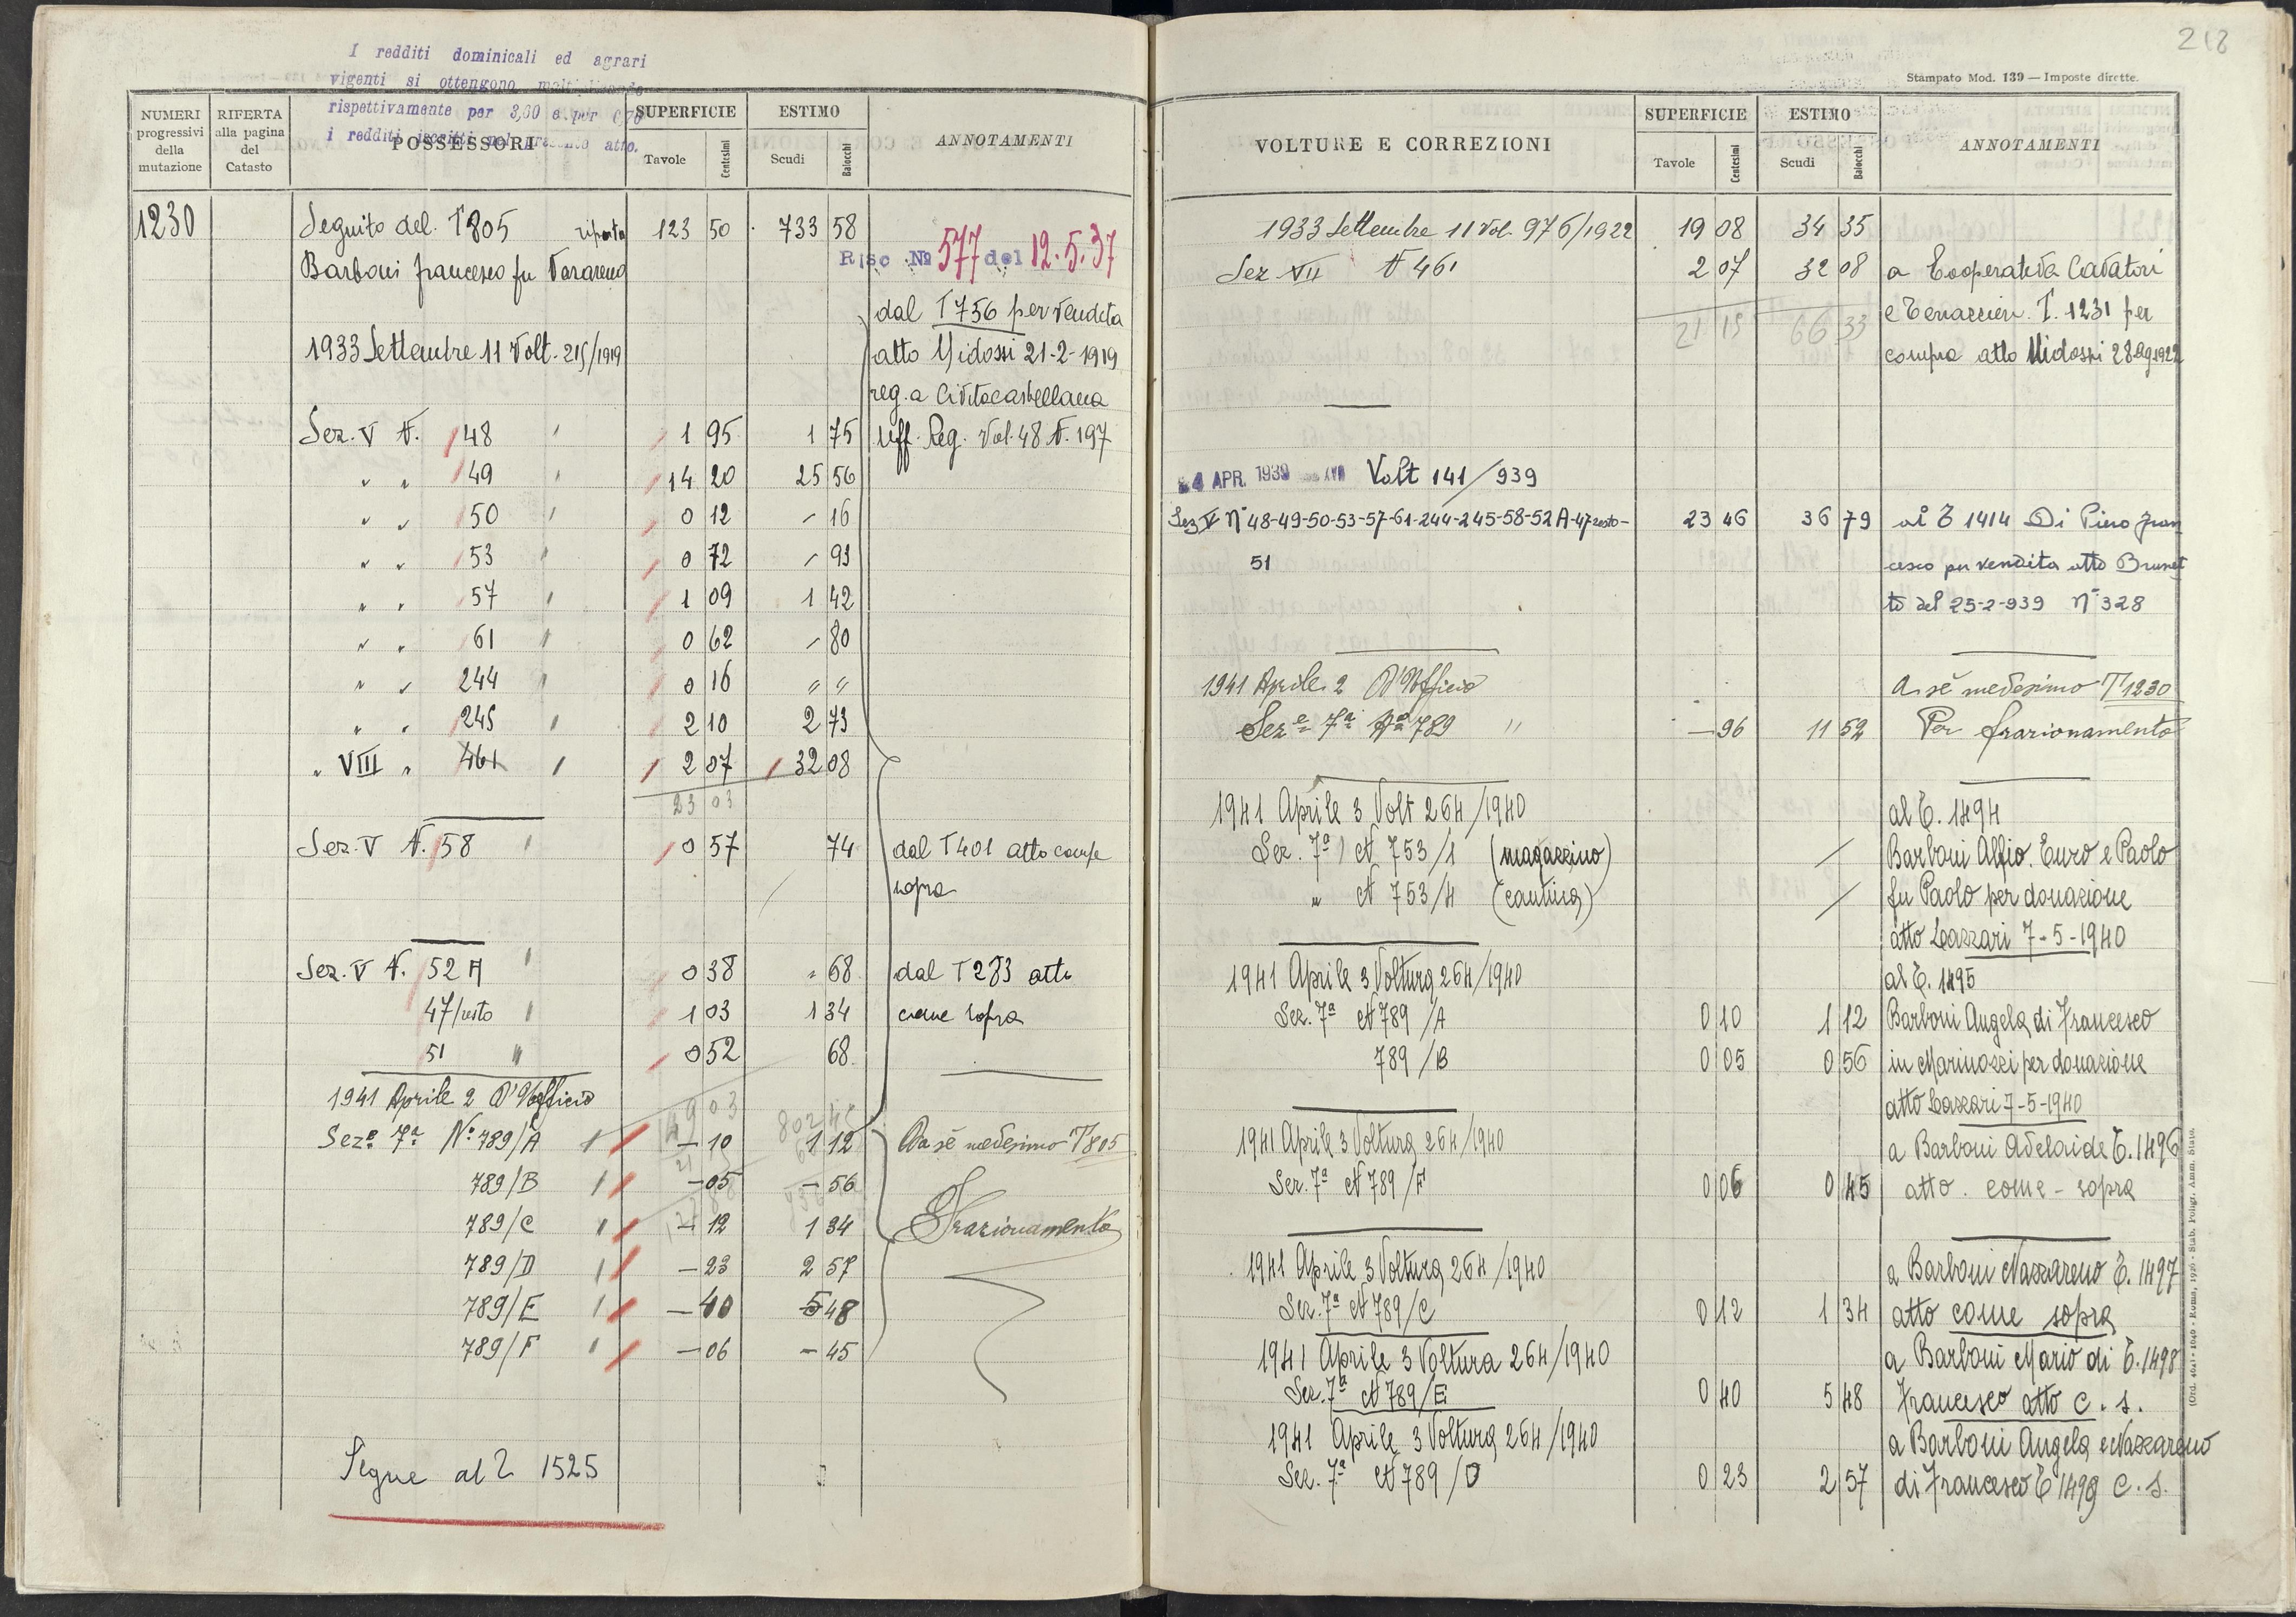 I redditi dominicali ed agrari
vigenti si ottengono moltiplicando
rispettivamente per 3,60 e per 0,70
i redditi iscritti nel presente atto.
NUMERI progressivi della mutazione
RIFERTA alla pagina del Catasto
POSSESSORI
SUPERFICIE
Tavole Centesimi
ESTIMO
Scudi Baiocchi
ANNOTAMENTI
1230 Seguito del T 805 riporto 123 50 733 58
Risc No 577 del 12.5.37
Barboni francesco fu
dal T 756 per vendita
1933 Settembre 11 Volt. 215/1919 atto Midossi 21-2-1919
reg. a Civitacastellana
Sez. V N. 48 1 95 1 75 Uff. Reg. Vol. 48 N. 197
" " 49 14 20 25 56
" " 50 0 12 - 16
" " 53 0 72 - 93
" " 57 1 09 1 42
" " 61 0 62 - 80
" " 244 0 16 " "
" " 245 2 10 2 73
" VIII " 461 2 07 32 08
23 03
Sez. V N. 58 0 57 74 dal T 401 atto come
sopra
Sez. V N. 52 A 0 38 " 68 dal T 283 atto
47/resto 1 03 1 34 come sopra
51 " 0 52 68
1941 Aprile 2 D'Ufficio
Seze 7a No 789/A - 10 1 12 Da sé medesimo T 805
789/B - 05 - 56
789/C - 12 1 34 Frazionamento
789/D - 23 2 57
789/E - 40 5 48
789/F - 06 - 45
Segue al T 1525
218
Stampato Mod. 139 — Imposte dirette.
VOLTURE E CORREZIONI
SUPERFICIE
Tavole Centesimi
ESTIMO
Scudi Baiocchi
ANNOTAMENTI
1933 Settembre 11 Vol. 976/1922 19 08 34 35
Sez VII N 461 2 07 32 08 a Cooperativa Cavatori
21 15 66 33 e Terraccieri T. 1231 per
compra atto Midossi 28 Ag 1922
4 APR. 1939 XVII Volt 141/939
Sez V N° 48-49-50-53-57-61-244-245-58-52A-47 resto- 23 46 36 79 al T 1414 Di Piero Fran
51 cesco per vendita atto Brunet
to del 25-2-939 N° 328
1941 Aprile 2 D'Ufficio A sé medesimo T 1230
Seze 7a No 789 " - 96 11 52 Per frazionamento
1941 Aprile 3 Volt 264/1940 al T. 1494
Sez. 7a N 753/1 (magazzino) Barboni Alfio, Euro e Paolo
" N 753/4 (cantina) fu Paolo per donazione
atto Lazzari 7-5-1940
1941 Aprile 3 Voltura 264/1940 al T. 1495
Sez. 7a N 789/A 0 10 1 12 Barboni Angela di Francesco
789/B 0 05 0 56 in Marinozzi per donazione
atto Lazzari 7-5-1940
1941 Aprile 3 Voltura 264/1940 a Barboni Adelaide T. 1496
Sez. 7a N 789/F 0 06 0 45 atto. come - sopra
1941 Aprile 3 Voltura 264/1940 a Barboni Nazzareno T. 1497
Sez. 7a N 789/C 0 12 1 34 atto come sopra
1941 Aprile 3 Voltura 264/1940 a Barboni Mario di T. 1498
Sez. 7a N 789/E 0 40 5 48 Francesco atto c. s.
1941 Aprile 3 Voltura 264/1940 a Barboni Angela e Nazzareno
Sez. 7a N 789/D 0 23 2 57 di Francesco T 1499 c. s.